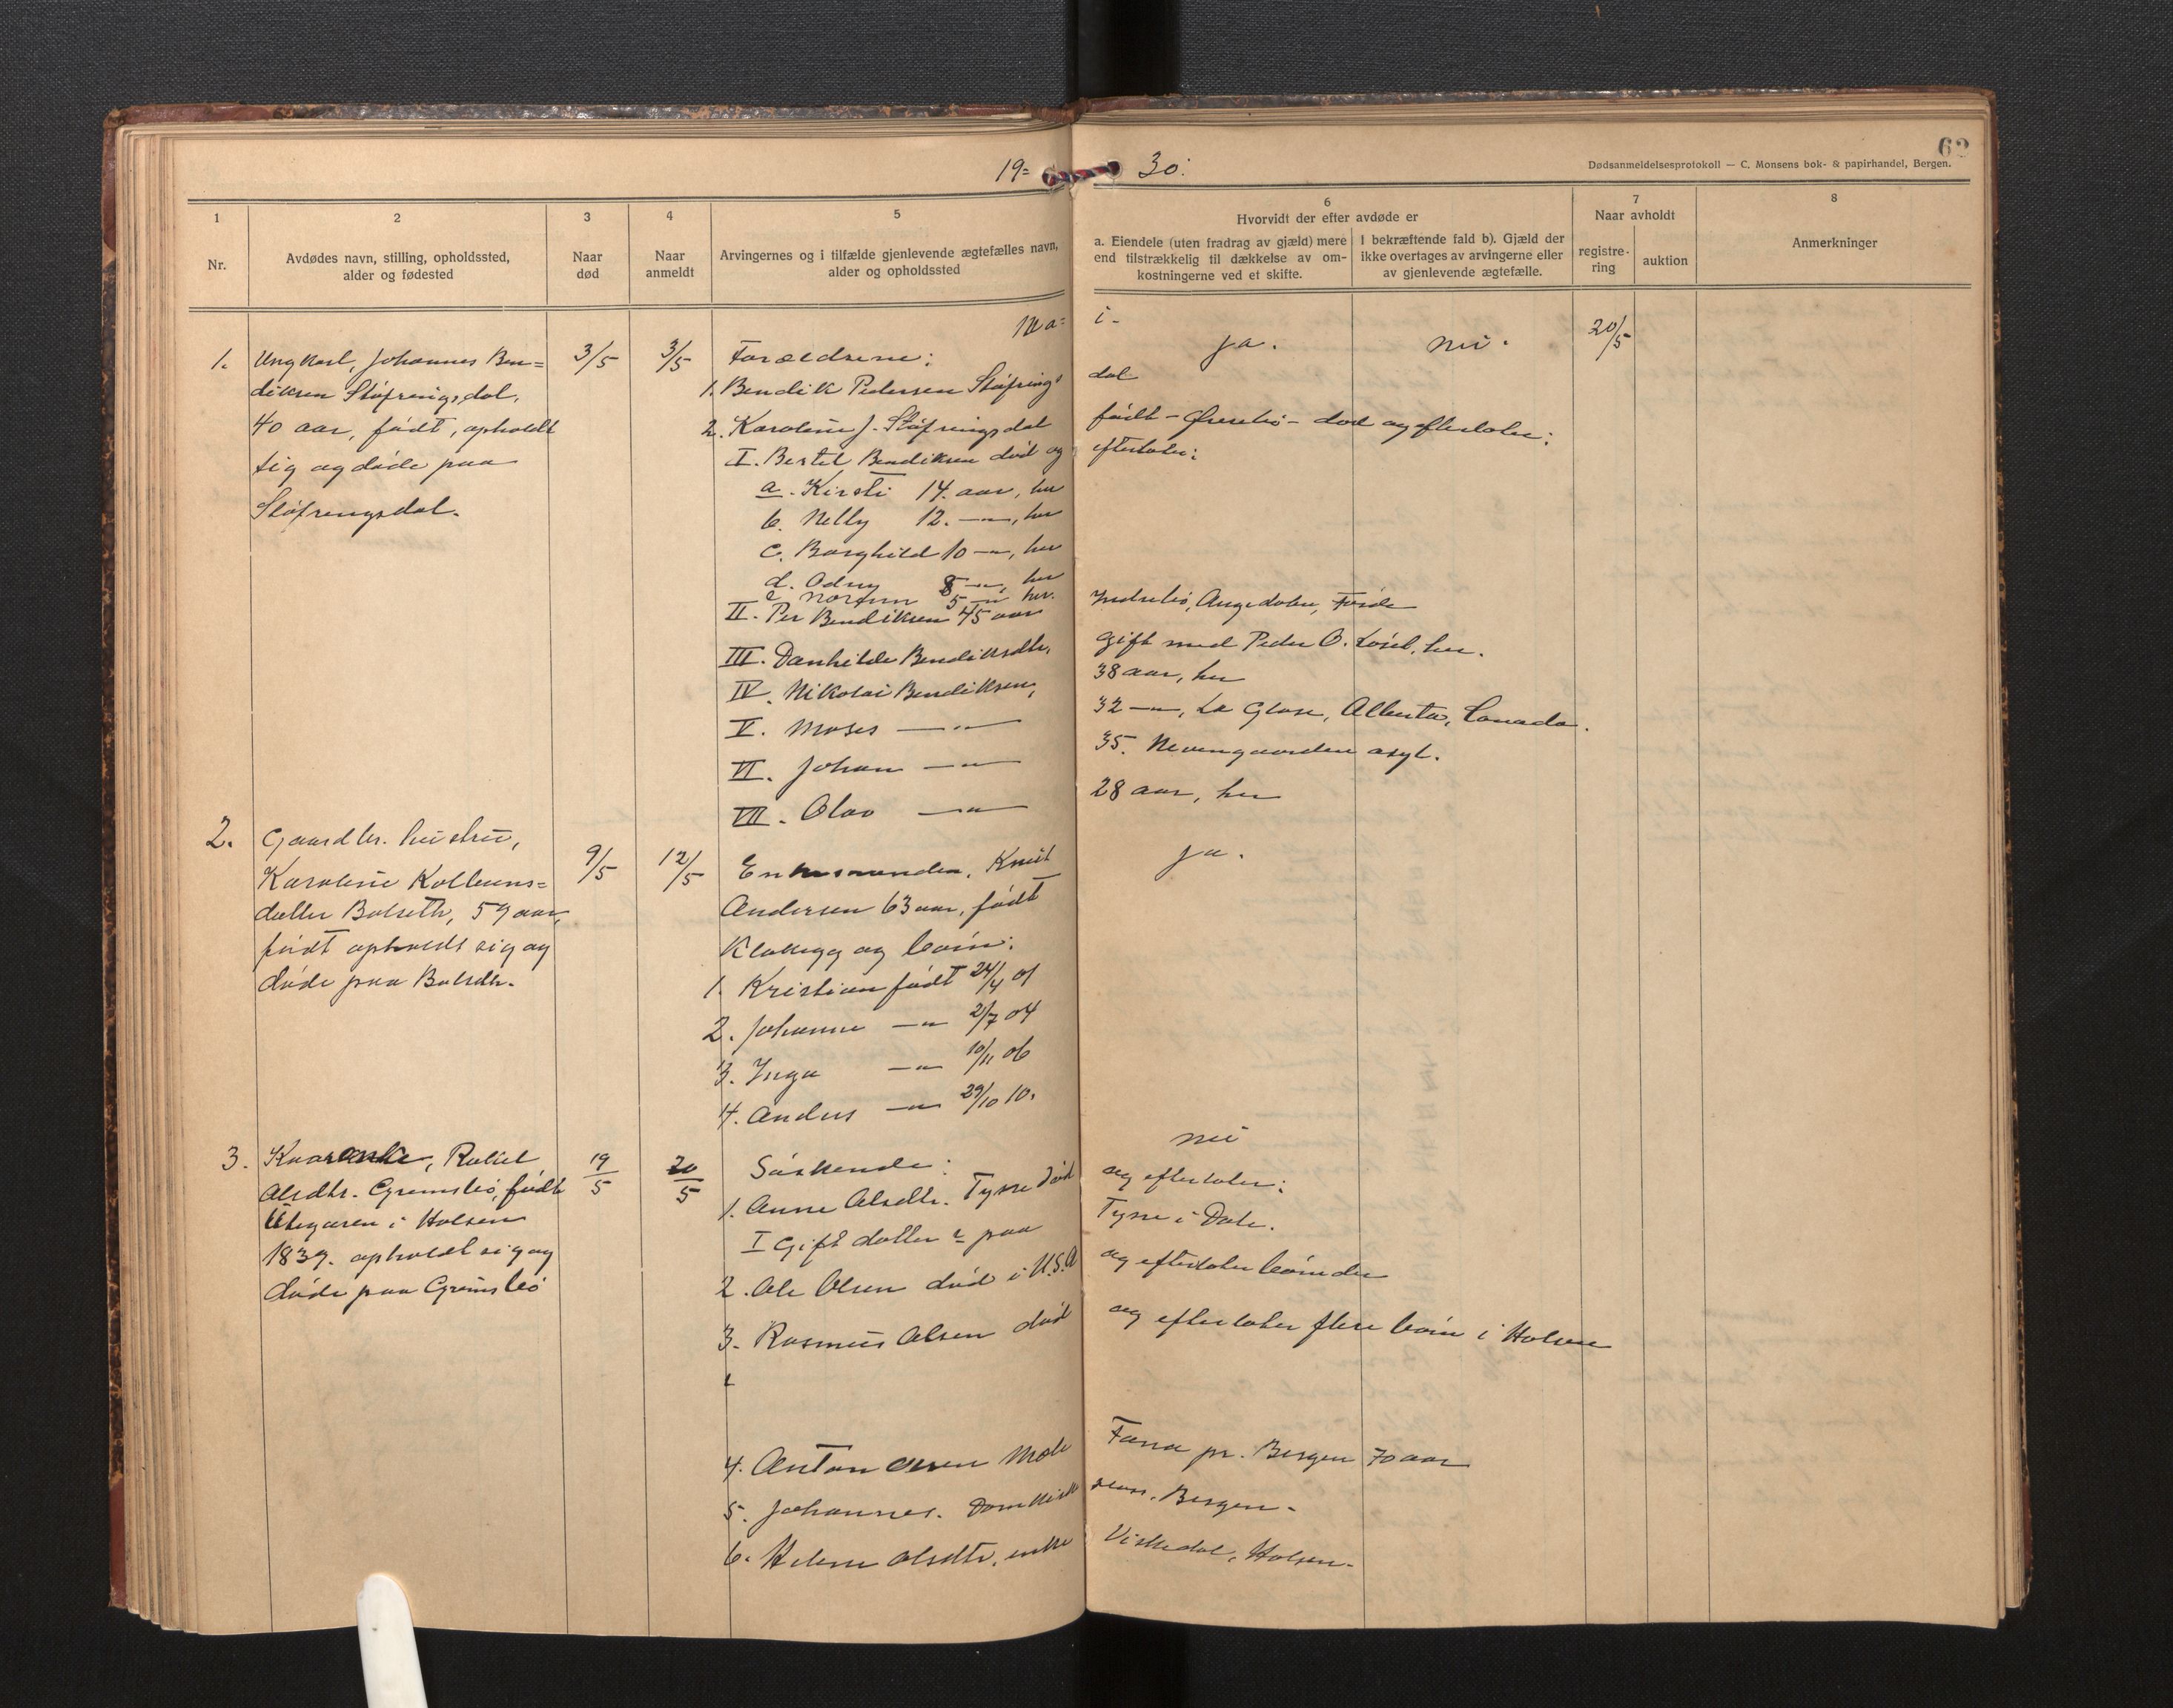 19= 30.
62
Dødsanmeldelsesprotokoll — C. Monsens bok- & papirhandel, Bergen.
1 2 3 4 5 6 7 8
Nr.
Avdødes navn, stilling, opholdssted,
alder og fødested
Naar
død
Naar
anmeldt
Arvingernes og i tilfælde gjenlevende ægtefælles navn,
alder og opholdssted
Hvorvidt der efter avdøde er
a. Eiendele (uten fradrag av gjæld) mere
end tilstrækkelig til dækkelse av om-
kostningerne ved et skifte.
I bekræftende fald b). Gjæld der
ikke overtages av arvingerne eller
av gjenlevende ægtefælle.
Naar avholdt
registre-
ring
auktion
Anmerkninger
Ma= i-
1. Ungkarl, Johannes Ben=
diksen Støfringsdal,
40 aar, født, opholdt
sig og døde paa
Støfringsdal.
3/5 3/5
Forældrene:
ja. nei. 20/5
1. Bendik Pedersen Støfrings dal
2. Karoline J. Støfringsdal født - - død og efterlater:
I. Bertel Bendiksen død og efterlater:
a. Kirsti 14. aar, her
b. Nelly 12. —"—, her
c. Borghild 10 —"—, her
d. Odny 8 —"— her
e 5 —"— her.
II. Per Bendiksen 45 aar Indrebø, Angedalen, Førde
III. Danhilde Bendiksdtr. gift med Peder O. her.
IV. Nikolai Bendiksen, 38 aar, her
V. Moses —"— 32 —"—, La Glase, Alberta, Canada.
VI. Johan —"— 35. Nevengaarden asyl.
VII. Olav —"— 28 aar, her
2. Gaardbr. hustru,
Karoline Kolbeins=
datter Bolseth, 59 aar,
født opholdt sig og
døde paa Bolseth.
9/5 12/5
Enkemanden, Knut
ja.
Andersen 63 aar, født
Klakegg og børn:
1. Kristian født 24/4 01
2. Johanne —"— 2/7 04
3. Inga —"— 10/11 06
4. Anders —"— 29/10 10.
3. Kaarenke, Rakel
Olsdtr. Grimsbø, født
Utegaren i Holsen
1839. opholdt sig og
døde paa Grimsbø
19/5 20/5
nei
Søskende:
1. Anne Olsdtr. Tysse død og efterlater:
I Gift datter paa Tysse i Dale.
2. Ole Olsen død i U.S.A og efterlater børn der
3. Rasmus Olsen død og efterlater flere børn i Holsen
4. Anton Olsen Fana pr. Bergen 70 aar
5. Johannes. Bergen.
6. Helene Olsdtr. enke Viskedal, Holsen.